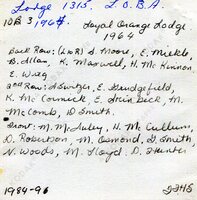 Lodge 1315. L.O.B.A.
10B 3, 1964
Loyal Orange Lodge
1964
Back Row: (L to R) S. Moore, E. Meikle,
B. Allan, K. Maxwell, H. McKinnon
E. Wray
2nd Row: Switzer, E. Grudgefield,
K. McCormick, E. Steinbeck, M.
McComb, D. Smith.
Front: M. McAuley, H. McCullum,
D. Robertson, M. Osmond, G. Smith
N. Woods, M. Lloyd. D. Hunter
1984-96